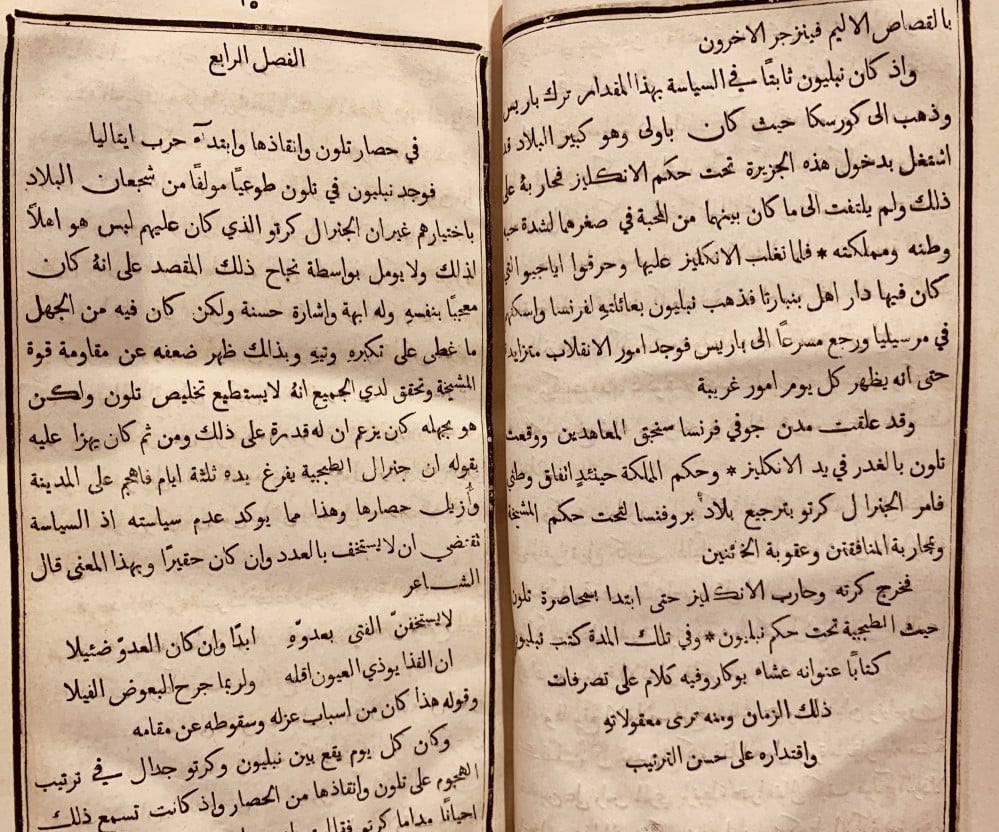 بالقصاص الاليم فينزجر الاخرون
واذ كان نبليون ثابقًا في السياسة بهذا المقدام ترك باريس
وذهب الى كورسكا حيث كان باولى وهو كبير البلاد قد
اشتغل بدخول هذه الجزيرة تحت حكم الانكليز فحاربهُ على
ذلك ولم يلتفت الى ما كان بينهما من المحبة في صغرهما لشدة حبه
وطنه ومملكته * فلما تغلب الانكليز عليها وحرقوا اياجيو التي
كان فيها دار اهل بنبارثا فذهب نبليون بعائلته لفرنسا واسكنهم
في مرسيليا ورجع مسرعًا الى باريس فوجد امور الانقلاب متزايدة
حتى انه يظهر كل يوم امور غريبة
وقد علقت مدن جوفي فرنسا سنجق المعاهدين ووقعت
تلون بالغدر في يد الانكليز * وحكم الملكة حينئدٍ اتفاق وطني
فامر الجنرال كرتو بترجيع بلاد بروفنسا لتحت حكم المشيخة
وبمحاربة المنافقين وعقوبة الخائنين
فخرج كرته وحارب الانكليز حتى ابتدا بمحاصرة تلون
حيث الطبجية تحت حكم نبليون * وفي تلك المدة كتب نبليون
كتابًا عنوانه عشاء بوكار وفيه كلام على تصرفات
ذلك الزمان ومنه ترى معقولاته
واقتداره على حسن الترتيب
١٥
الفصل الرابع
في حصار تلون وانقاذها وابتدآء حرب ايتاليا
فوجد نبليون في تلون طوعيًا مولفًا من شجعان البلاد
باختيارهم غير ان الجنرال كرتو الذي كان عليهم ليس هو اهلاً
لذلك ولا يومل بواسطة نجاح ذلك المقصد على انهُ كان
معجبًا بنفسهِ وله ابهة واشارة حسنة ولكن كان فيه من الجهل
ما غطى على تكبره وتيهِ وبذالك ظهر ضعفه عن مقاومة قوة
المشيخة وتحقق لدي الجميع انهُ لا يستطيع تخليص تلون ولكن
هو بجهله كان يزعم ان له قدرة على ذلك ومن ثم كان يهزا عليه
بقوله ان جنرال الطبجية يفرغ بده ثلثة ايام فاهجم على المدينة
وأزيل حصارها وهذا مما يوكد عدم سياسته اذ السياسة
تقتضي ان لا يستخف بالعدد وان كان حقيرًا وبهذا المعنى قال
الشاعر
لا يستخفنّ الفتى بعدوّهِ ابدًا وان كان العدوّ ضئيلا
ان القذا يوذي العيون اقله ولربما جرح البعوض الفيلا
وقوله هذا كان من اسباب عزله وسقوطه عن مقامه
وكان كل يوم يقع بين نبليون وكرتو جدال في ترتيب
الهجوم على تلون وانقاذها من الحصار واذ كانت تسمع ذلك
احيانًا مداما كرتو فقالت